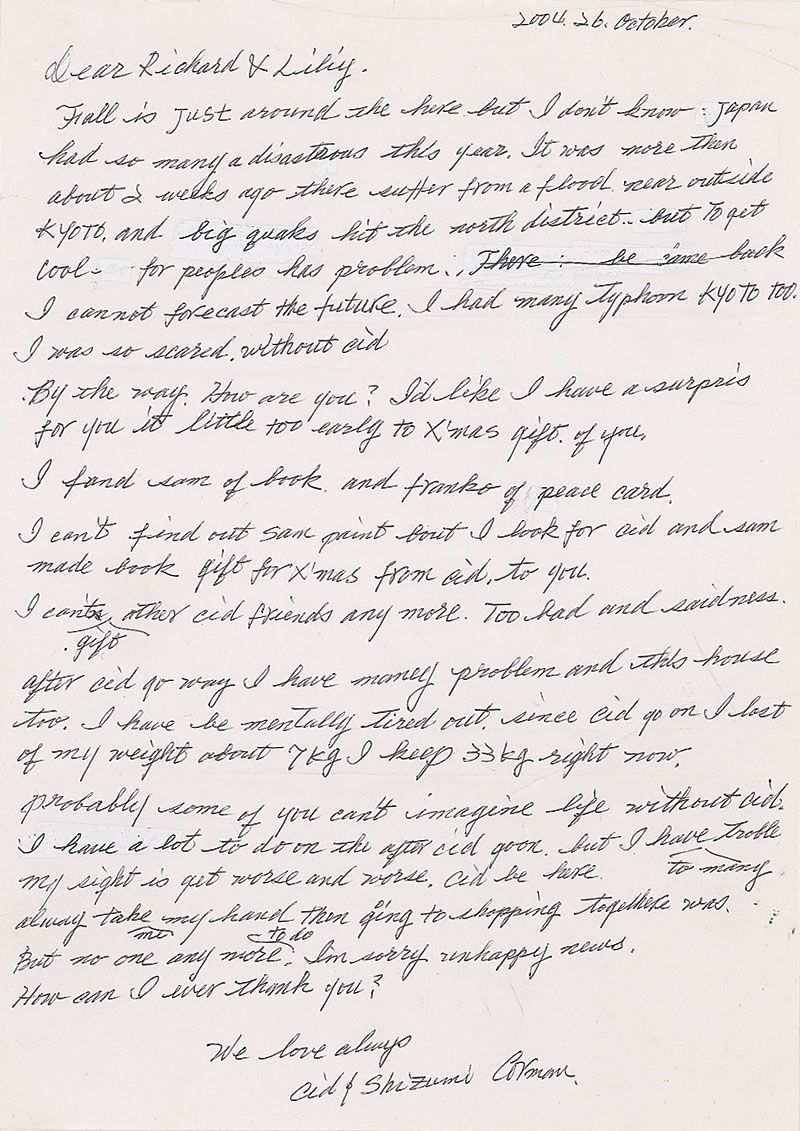 2004. 26. October.
Dear Richard & Liliy.
Fall is just around the here but I don't know. Japan
had so many a disastrous this year. It was more then
about 2 weeks ago there suffer from a flood. near outside
KYOTO. and big quaks hit the north district.. but To get
cool- for peoples has problem.. There : be came back
I cannot forecast the future. I had many Typhoon KYOTO TOO.
I was so scared. without cid
.By the way. How are you? I'd like I have a surpris
for you it little too early to X'mas gift. of you.
I fand sam of book. and franko of peace card.
I can't find out sam paint bout I look for cid and sam
made book gift for X'mas from cid, to you.
I can't other cid friends any more. Too bad and saidness.
.gift
after cid go way I have maney problem and this house
too. I have be mentally tired out. since cid go on I lost
of my weight about 7kg I keep 33kg right now.
probably some of you can't imagine life without cid.
I have a lot to do on the after cid goon. but I have Troble
my sight is get worse and worse. cid be here. to many
alway take my hand then going to shopping togethere was.
me to do
But no one any more. I'm sorry unhappy news.
How can I ever thank you?
We love always
cid & Shizumi Corman.